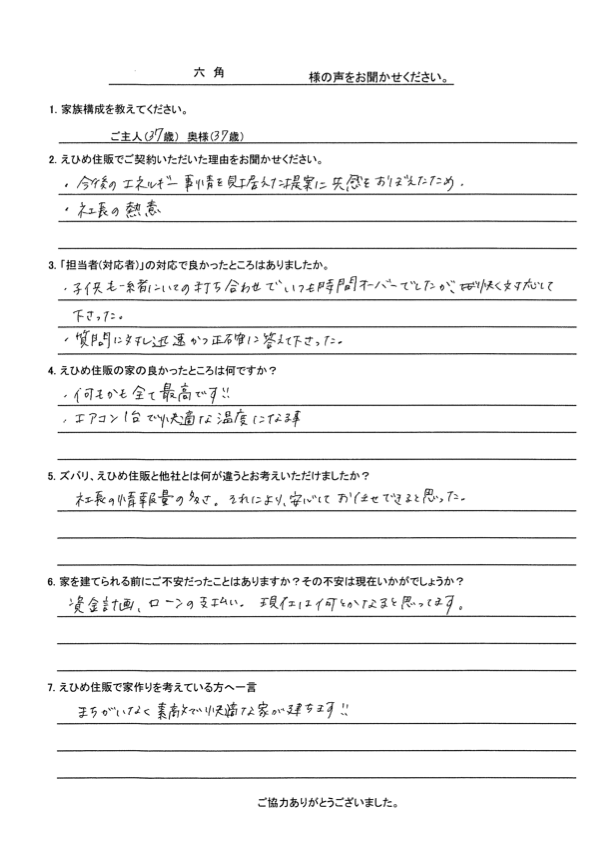 六 角 様の声をお聞かせください。
1. 家族構成を教えてください。
ご主人(37歳) 奥様(37歳)
2. えひめ住販でご契約いただいた理由をお聞かせください。
・今後のエネルギー事情を見据えた提案に共感をおぼえたため.
・社長の熱意
3.「担当者(対応者)」の対応で良かったところはありましたか。
・子供も一緒にいての打ち合わせでいつも時間オーバーでしたが、快く対応して
下さった。
・質問に対し迅速かつ正確に答えて下さった。
4. えひめ住販の家の良かったところは何ですか?
・何もかも全て最高です!!
・エアコン1台で快適な温度になる事
5. ズバリ、えひめ住販と他社とは何が違うとお考えいただけましたか?
社長の情報量の多さ。それにより、安心して お任せできると思った。
6. 家を建てられる前にご不安だったことはありますか?その不安は現在いかがでしょうか?
資金計画、ローンの支払い。 現在は何とかなると思ってます。
7. えひめ住販で家作りを考えている方へ一言
まちがいなく素敵で快適な家が建ちます!!
ご協力ありがとうございました。